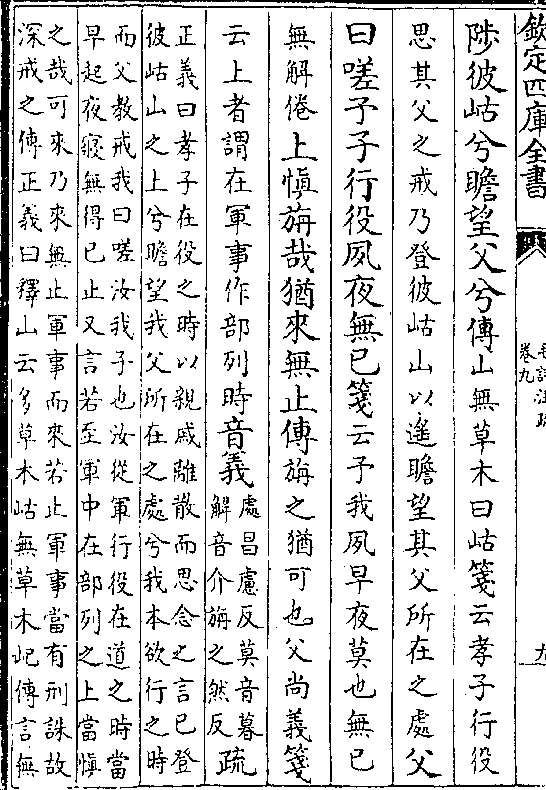 欽定四庫全書
毛詩注疏
卷九
九
陟彼岵兮瞻望父兮傳山無草木曰岵箋云孝子行役
思其父之戒乃登彼岵山以遙瞻望其父所在之處父
曰嗟予子行役夙夜無已箋云予我夙早夜莫也無已
無解倦上慎旃哉猶來無止傳旃之猶可也父尚義箋
云上者謂在軍事作部列時音義
處昌慮反莫音暮
解音介旃之然反
疏
正義曰孝子在役之時以親戚離散而思念之言已登
彼岵山之上兮瞻望我父所在之處兮我本欲行之時
而父教戒我曰嗟汝我子也汝從軍行役在道之時當
早起夜寐無得已止又言若至軍中在部列之上當慎
之哉可來乃來無止軍事而來若止軍事當有刑誅故
深戒之傳正義曰釋山云多草木岵無草木屺傳言無